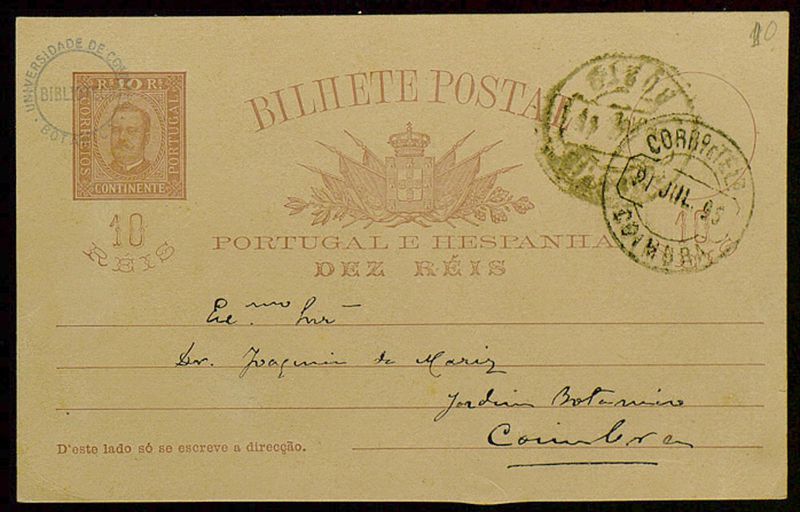 10
UNIVERSIDADE DE
BIBL
BOTA
Rs 10 Rs
CORREIOS
PORTUGAL
CONTINENTE
10
RÉIS
BILHETE POSTAL
PORTUGAL E HESPANHA
DEZ RÉIS
10
CORREIO
JUL. 95
COIMBRA
Exmo Snr
Dr. Joaquim de Mariz
Jardim Botanico
Coimbra
D'este lado só se escreve a direcção.